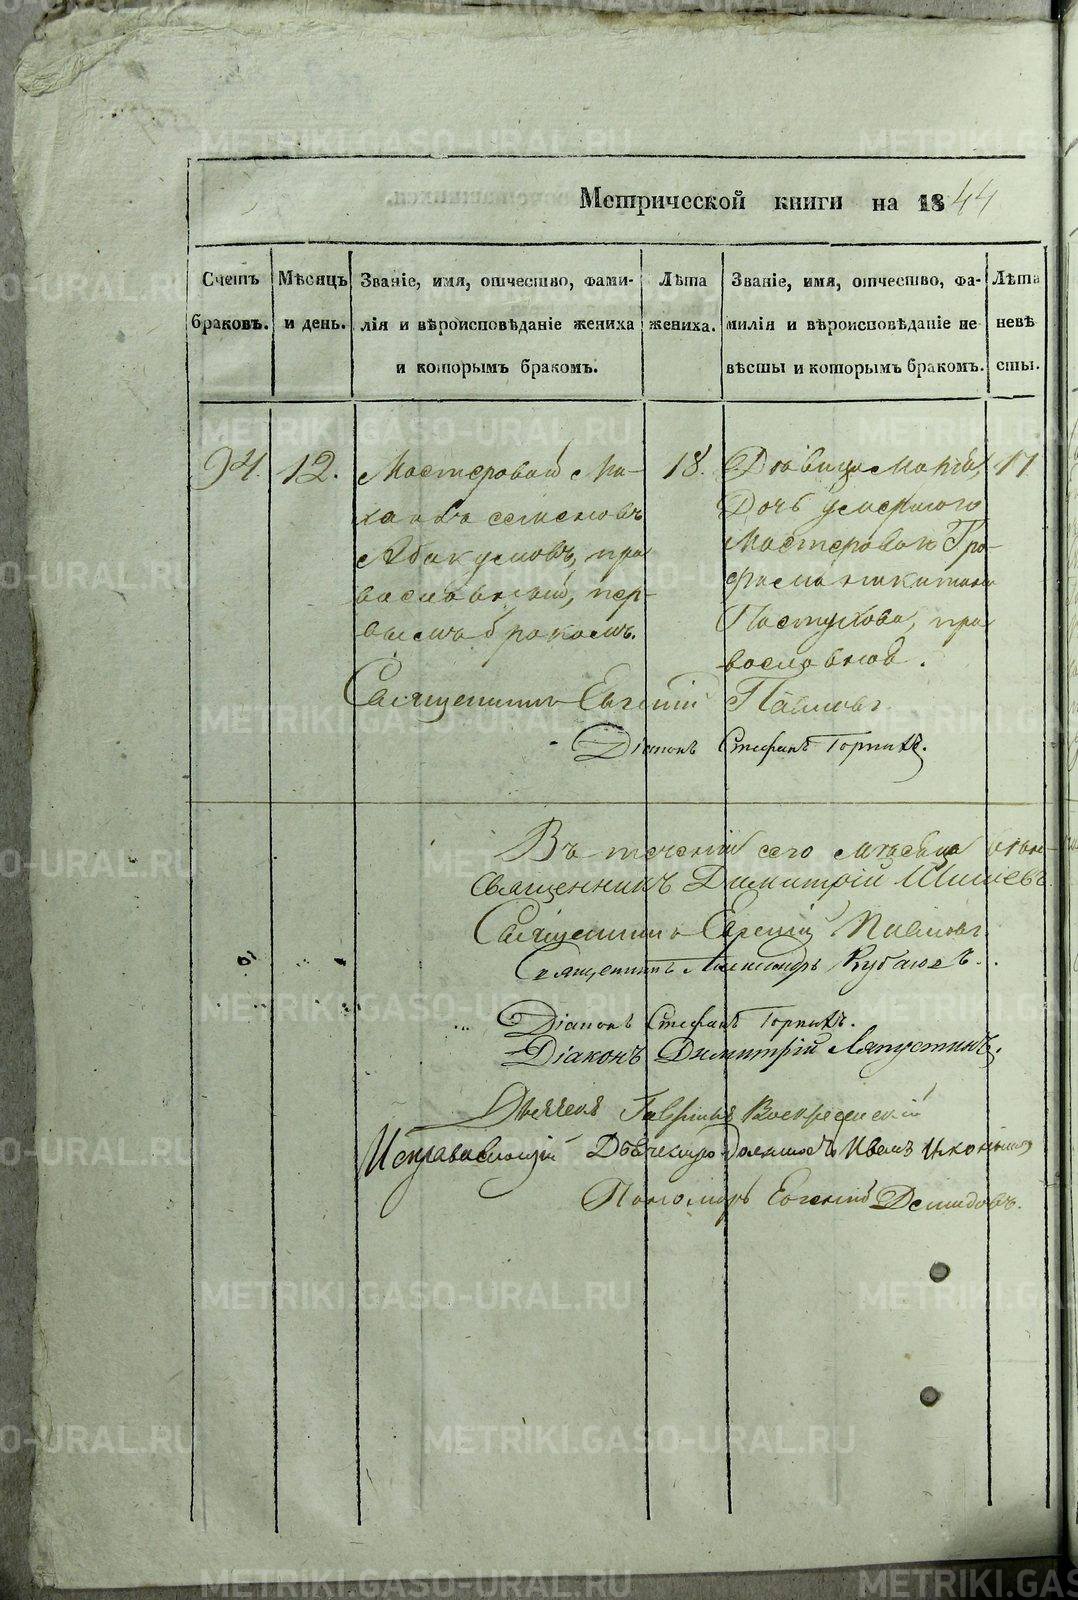 Метрической книги на 1844
Счетъ браковъ.
Мѣсяцъ и день.
Званіе, имя, отчество, фами-
лія и вѣроисповѣданіе жениха
и которымъ бракомъ.
Лѣта жениха.
Званіе, имя, отчество, фа-
милія и вѣроисповѣданіе не
вѣсты и которымъ бракомъ.
Лѣта невѣ сты.
94. 12.
Мастеровый Ми-
хаилъ Семеновъ
Абакумовъ, пра
вославный, пер-
вымъ бракомъ.
18.
Дѣвица Марія,
Дочь умершаго
Мастероваго Тро-
фима Никитина
Пастухова, пра
вославнаѧ.
17
Священникъ Евгеній Павловъ
Діаконъ Стефанъ
Въ теченіи сего мѣсяца
Священникъ Димитрій
Священникъ Евгеній Павловъ
Священникъ Александръ
Діаконъ Стефанъ
Діаконъ Димитрій Ляпустинъ.
Дьячекъ Гавріилъ Воскресенскій
Исправляющій Дьяческую должность Иванъ
Пономарь Евгеній Демидовъ.
METRIKI.GASO-URAL.RU